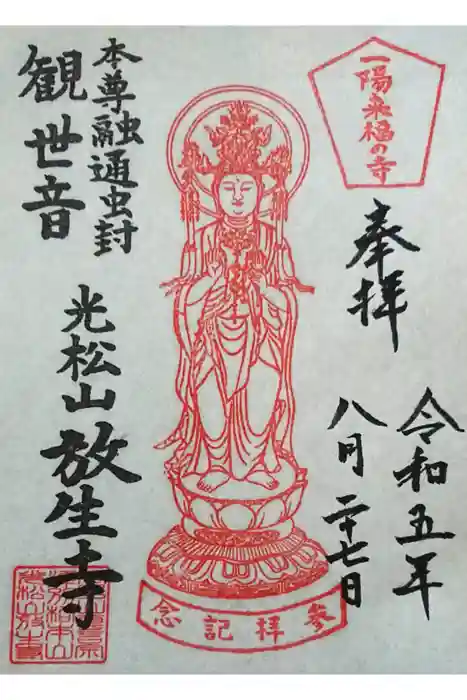 一陽来福の寺
奉拝
令和五年
八月二十七日
本尊融通虫封
観世音
光松山放生寺
参拝記念